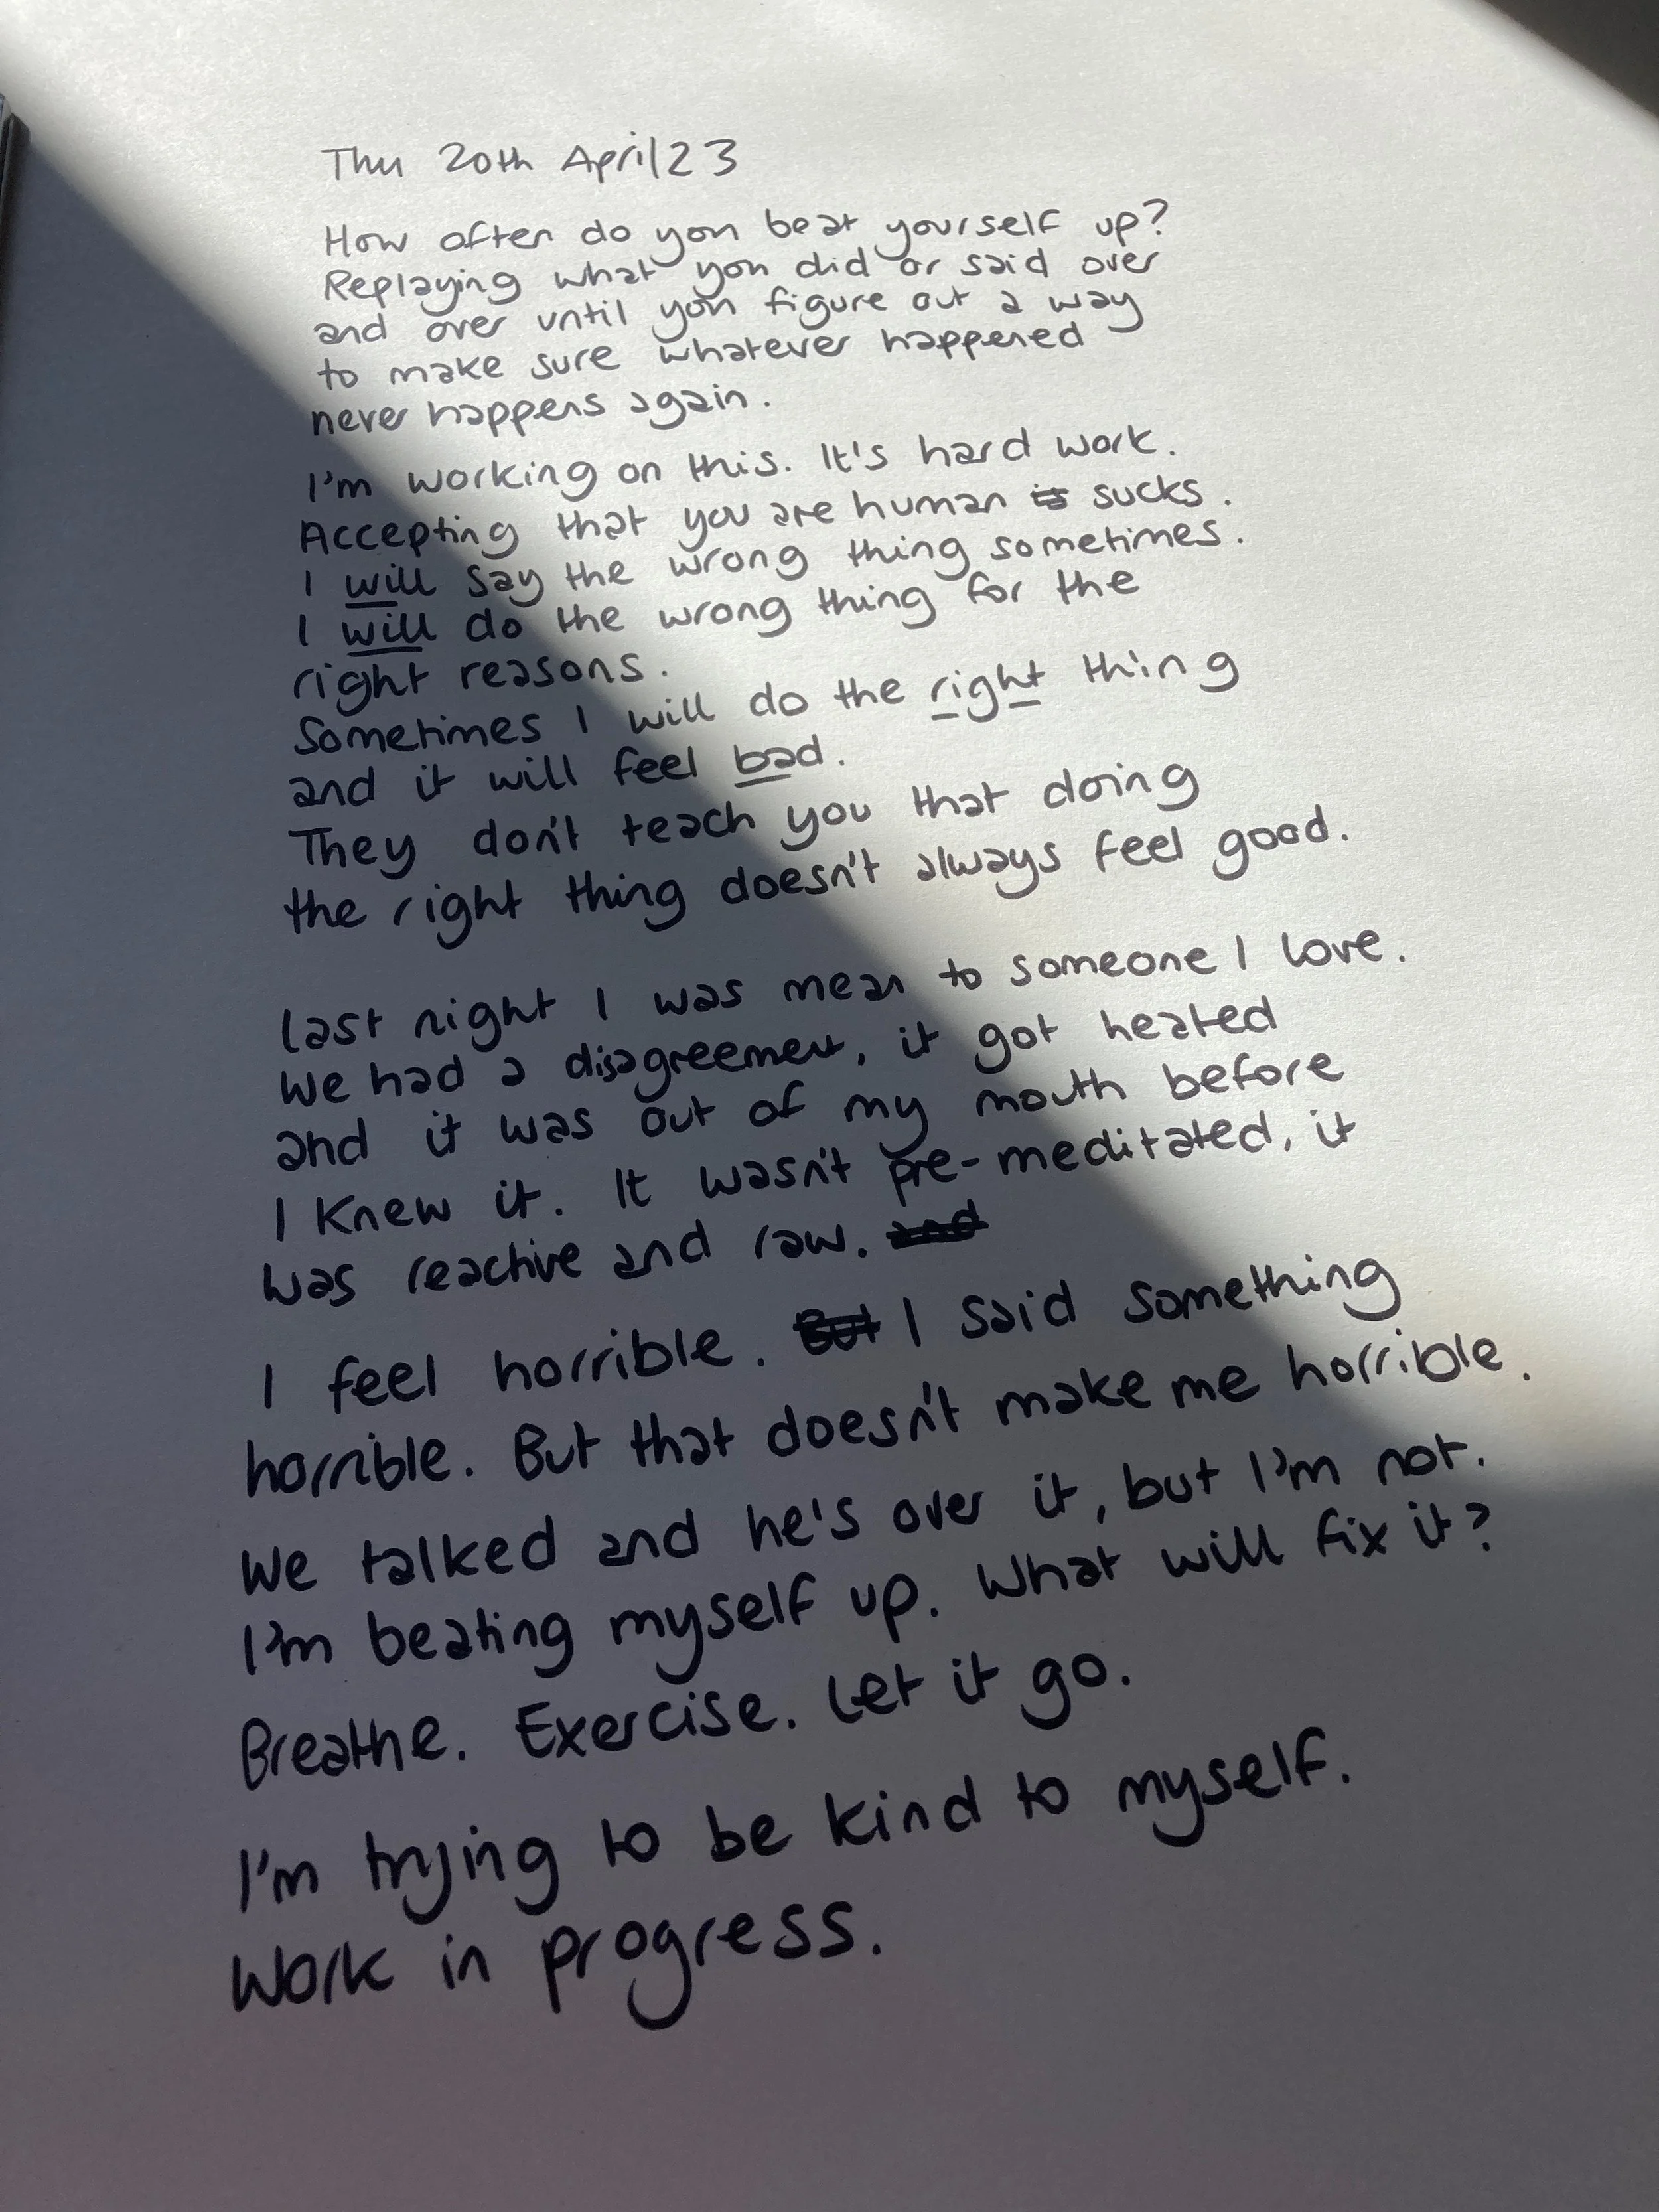 Thu 20th April 23
How often do you beat yourself up?
Replaying what you did or said over
and over until you figure out a way
to make sure whatever happened
never happens again.
I'm working on this. It's hard work.
Accepting that you are human is sucks.
I will say the wrong thing sometimes.
I will do the wrong thing for the
right reasons.
Sometimes I will do the right thing
and it will feel bad.
They don't teach you that doing
the right thing doesn't always feel good.
Last night I was mean to someone I love.
We had a disagreement, it got heated
and it was out of my mouth before
I knew it. It wasn't pre-meditated, it
was reactive and raw. and
I feel horrible. But I said something
horrible. But that doesn't make me horrible.
We talked and he's over it, but I'm not.
I'm beating myself up. What will fix it?
Breathe. Exercise. Let it go.
I'm trying to be kind to myself.
Work in progress.